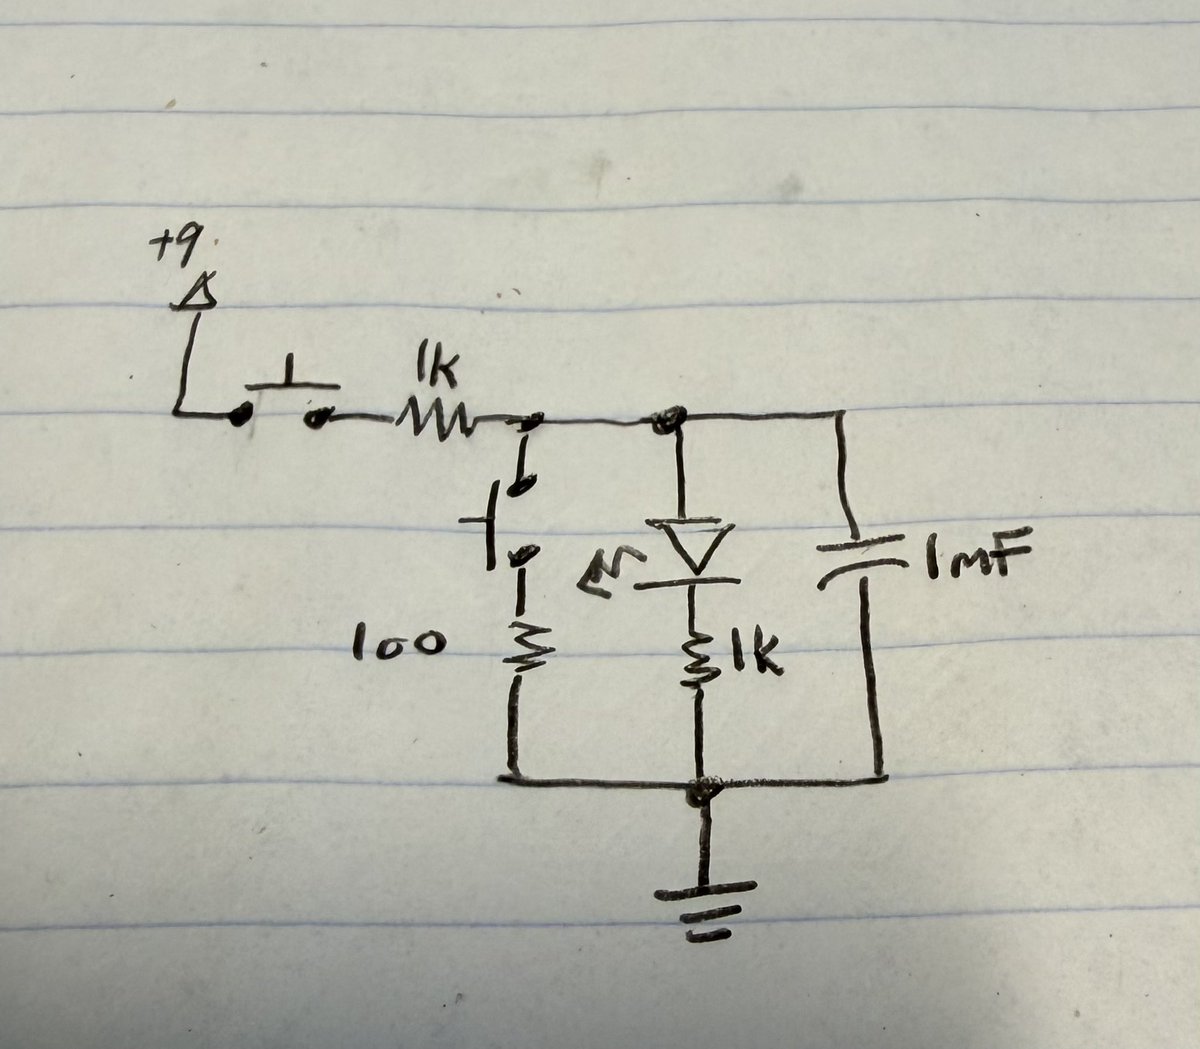 +9
1k
1mF
100
1k